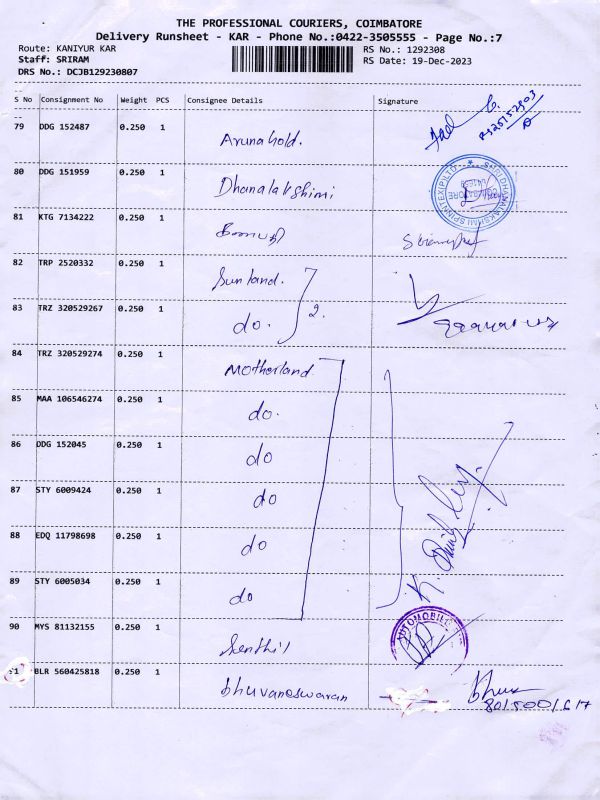 THE PROFESSIONAL COURIERS, COIMBATORE
Delivery Runsheet - KAR - Phone No.:0422-3505555 - Page No.:7
Route: KANIYUR KAR RS No.: 1292308
Staff: SRIRAM RS Date: 19-Dec-2023
DRS No.: DCJB129230807
S No Consignment No Weight PCS Consignee Details Signature
79 DDG 152487 0.250 1 Aruna hold.
80 DDG 151959 0.250 1 Dhanalakshimi
81 KTG 7134222 0.250 1
82 TRP 2520332 0.250 1 Sunland.
83 TRZ 320529267 0.250 1 do. 2.
84 TRZ 320529274 0.250 1 Motherland
85 MAA 106546274 0.250 1 do.
86 DDG 152045 0.250 1 do
87 STY 6009424 0.250 1 do
88 EDQ 11798698 0.250 1 do
89 STY 6005034 0.250 1 do
90 MYS 81132155 0.250 1 Senthil
91 BLR 560425818 0.250 1 bhuvaneswaran